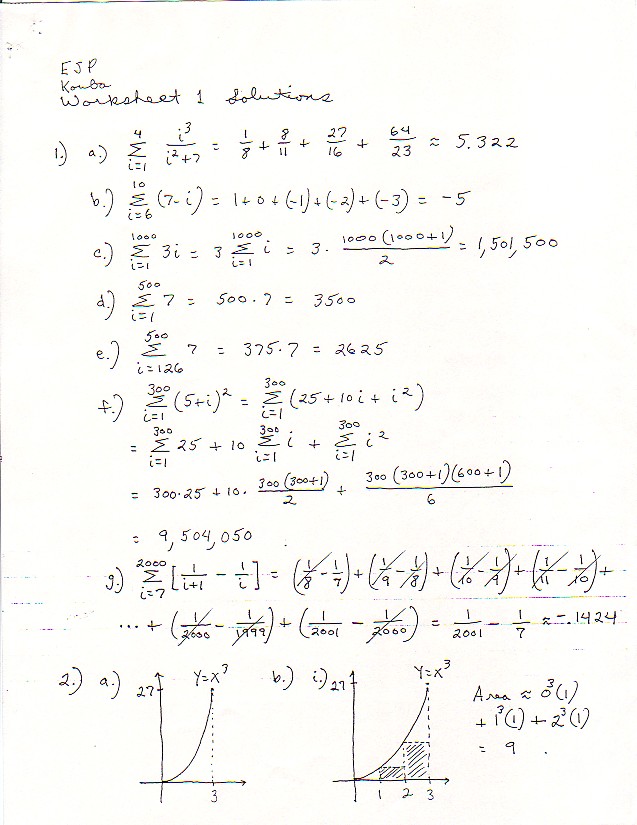 ESP
Kouba
Worksheet 1 Solutions
1.) a.) 4 Σ i=1 i³/(i²+7) = 1/8 + 8/11 + 27/16 + 64/23 ≈ 5.322
b.) 10 Σ i=6 (7-i) = 1+0+(-1)+(-2)+(-3) = -5
c.) 1000 Σ i=1 3i = 3 1000 Σ i=1 i = 3 · 1000(1000+1)/2 = 1,501,500
d.) 500 Σ i=1 7 = 500·7 = 3500
e.) 500 Σ i=126 7 = 375·7 = 2625
f.) 300 Σ i=1 (5+i)² = 300 Σ i=1 (25+10i+i²)
= 300 Σ i=1 25 + 10 300 Σ i=1 i + 300 Σ i=1 i²
= 300·25 + 10· 300(300+1)/2 + 300(300+1)(600+1)/6
= 9,504,050 .
g.) 2000 Σ i=7 [1/(i+1) - 1/i] = (1/8 - 1/7) + (1/9 - 1/8) + (1/10 - 1/9) + (1/11 - 1/10) +
··· + (1/2000 - 1/1999) + (1/2001 - 1/2000) = 1/2001 - 1/7 ≈ -.1424
2.) a.) 27 Y=x³ 3
b.) i.) 27 Y=x³ 1 2 3
Area ≈ 0³(1)
+ 1³(1) + 2³(1)
= 9 .